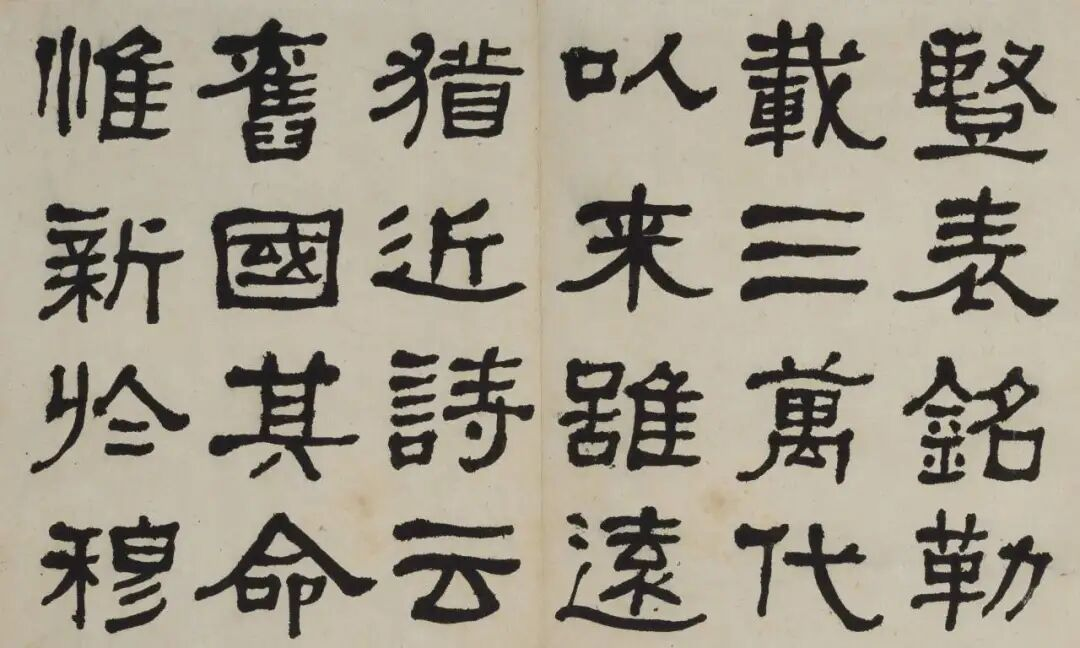 竪表銘勒
載三萬代
以来雖遠
猶近詩云
舊國其命
惟新於穆